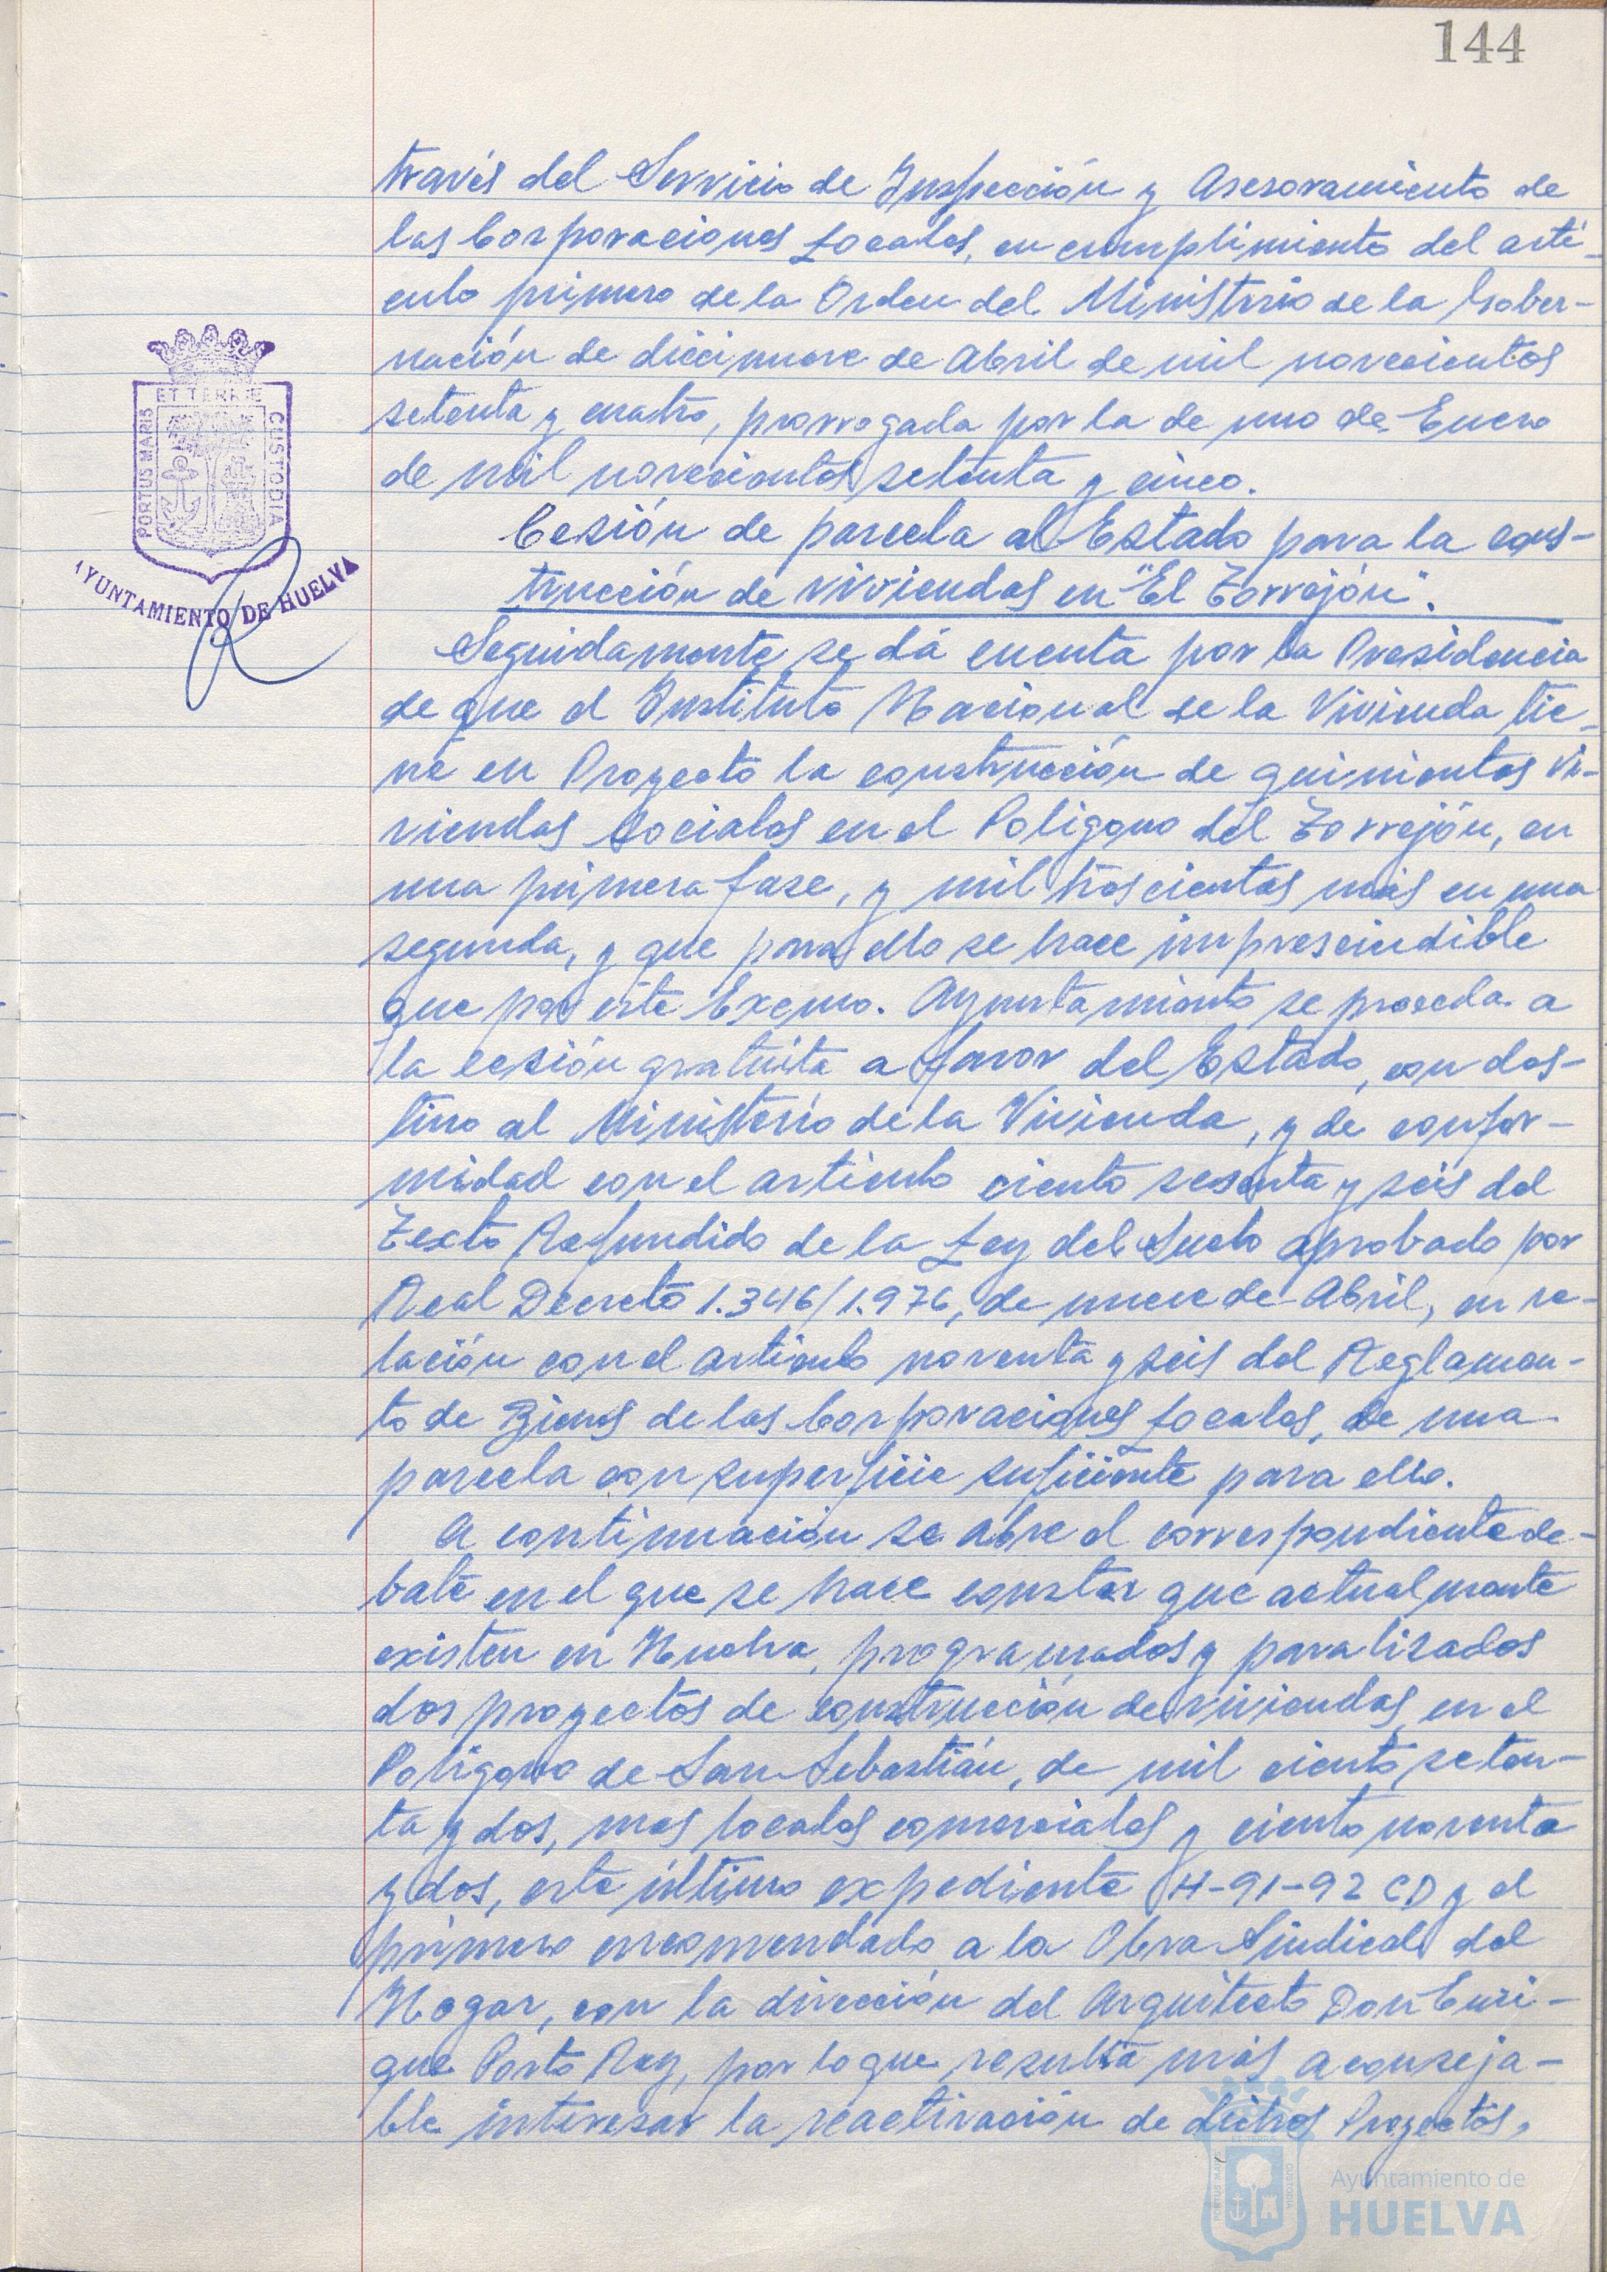 144
través del Servicio de Inspección y Asesoramiento de
las Corporaciones Locales, en cumplimiento del artí-
culo primero de la Orden del Ministerio de la Gober-
nación de diecinueve de Abril de mil novecientos
setenta y cuatro, prorrogada por la de uno de Enero
de mil novecientos setenta y cinco.
Cesión de parcela al Estado para la cons-
trucción de viviendas en "El Torrejón".
Seguidamente se dá cuenta por la Presidencia
de que el Instituto Nacional de la Vivienda tie-
ne en Proyecto la construcción de quinientas vi-
viendas sociales en el Poligono del Torrejón, en
una primera fase, y mil trescientas más en una
segunda, y que para ello se hace imprescindible
que por este Excmo. Ayuntamiento se proceda a
la cesión gratuita a favor del Estado, con des-
tino al Ministerio de la Vivienda, y de confor-
midad con el articulo ciento sesenta y seis del
Texto Refundido de la Ley del Suelo aprobado por
Real Decreto 1.346/1.976, de nueve de Abril, en re-
lación con el articulo noventa y seis del Reglamen-
to de Bienes de las Corporaciones Locales, de una
parcela con superficie suficiente para ello.
A continuación se abre el correspondiente de-
bate en el que se hace constar que actualmente
existen en Huelva, programados y paralizados
dos proyectos de construcción de viviendas en el
Poligono de San Sebastián, de mil ciento seten-
ta y dos, mas locales comerciales y ciento noventa
y dos, este último expediente H-91-92 CD y el
primero encomendado a la Obra Sindical del
Hogar, con la dirección del Arquitecto Don Enri-
que Porto Rey, por lo que resulta más aconseja-
ble interesar la reactivación de dichos Proyectos,
ET TERRE
PORTUS MARIS
CUSTODIA
AYUNTAMIENTO DE HUELVA
Ayuntamiento de
HUELVA